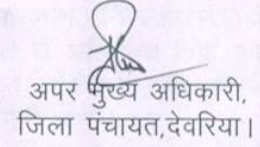 अपर मुख्य अधिकारी,
जिला पंचायत,देवरिया।